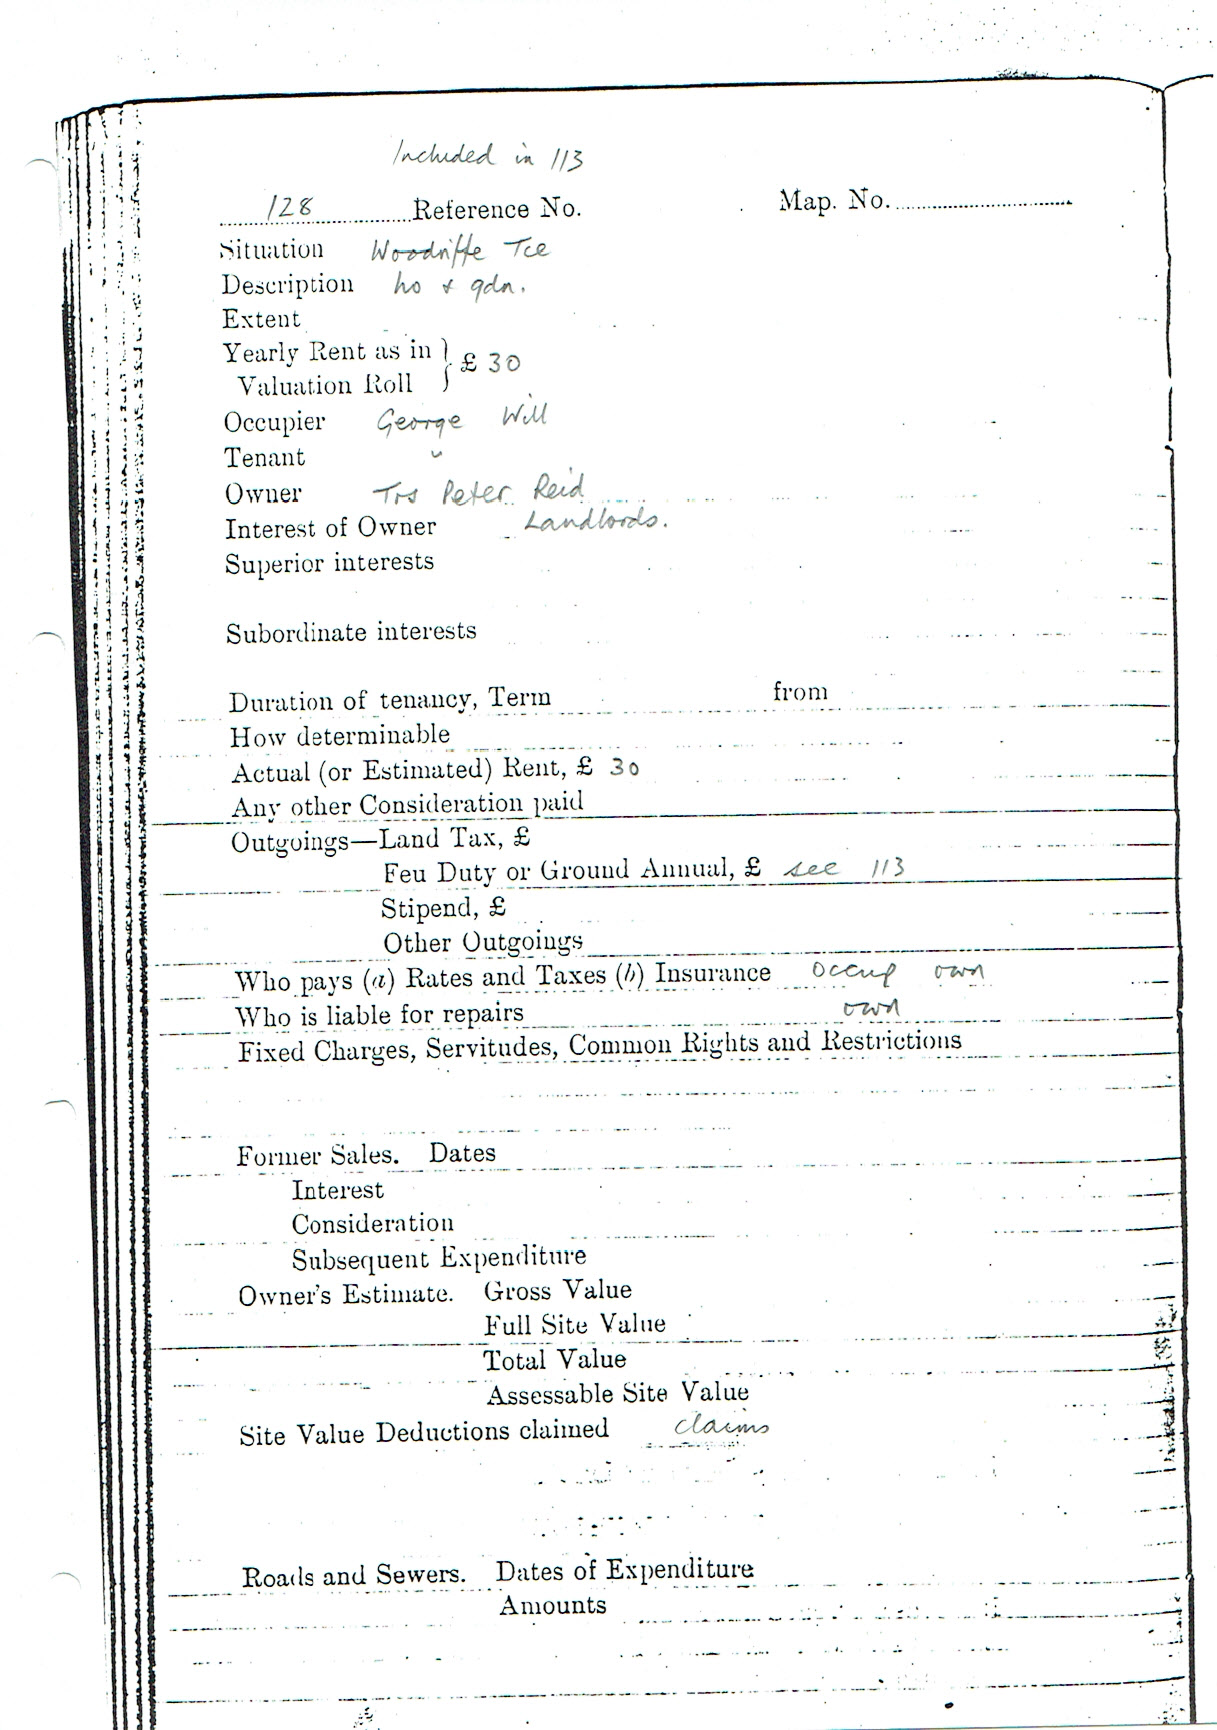 Included in 113
128 Reference No. Map. No.
Situation Woodriffe Tce
Description ho & gdn.
Extent
Yearly Rent as in } £ 30
Valuation Roll
Occupier George Will
Tenant "
Owner Trs Peter Reid
Interest of Owner Landlords.
Superior interests
Subordinate interests
Duration of tenancy, Term from
How determinable
Actual (or Estimated) Rent, £ 30
Any other Consideration paid
Outgoings—Land Tax, £
Feu Duty or Ground Annual, £ see 113
Stipend, £
Other Outgoings
Who pays (a) Rates and Taxes (b) Insurance occup own
Who is liable for repairs own
Fixed Charges, Servitudes, Common Rights and Restrictions
Former Sales. Dates
Interest
Consideration
Subsequent Expenditure
Owner's Estimate. Gross Value
Full Site Value
Total Value
Assessable Site Value
Site Value Deductions claimed claims
Roads and Sewers. Dates of Expenditure
Amounts